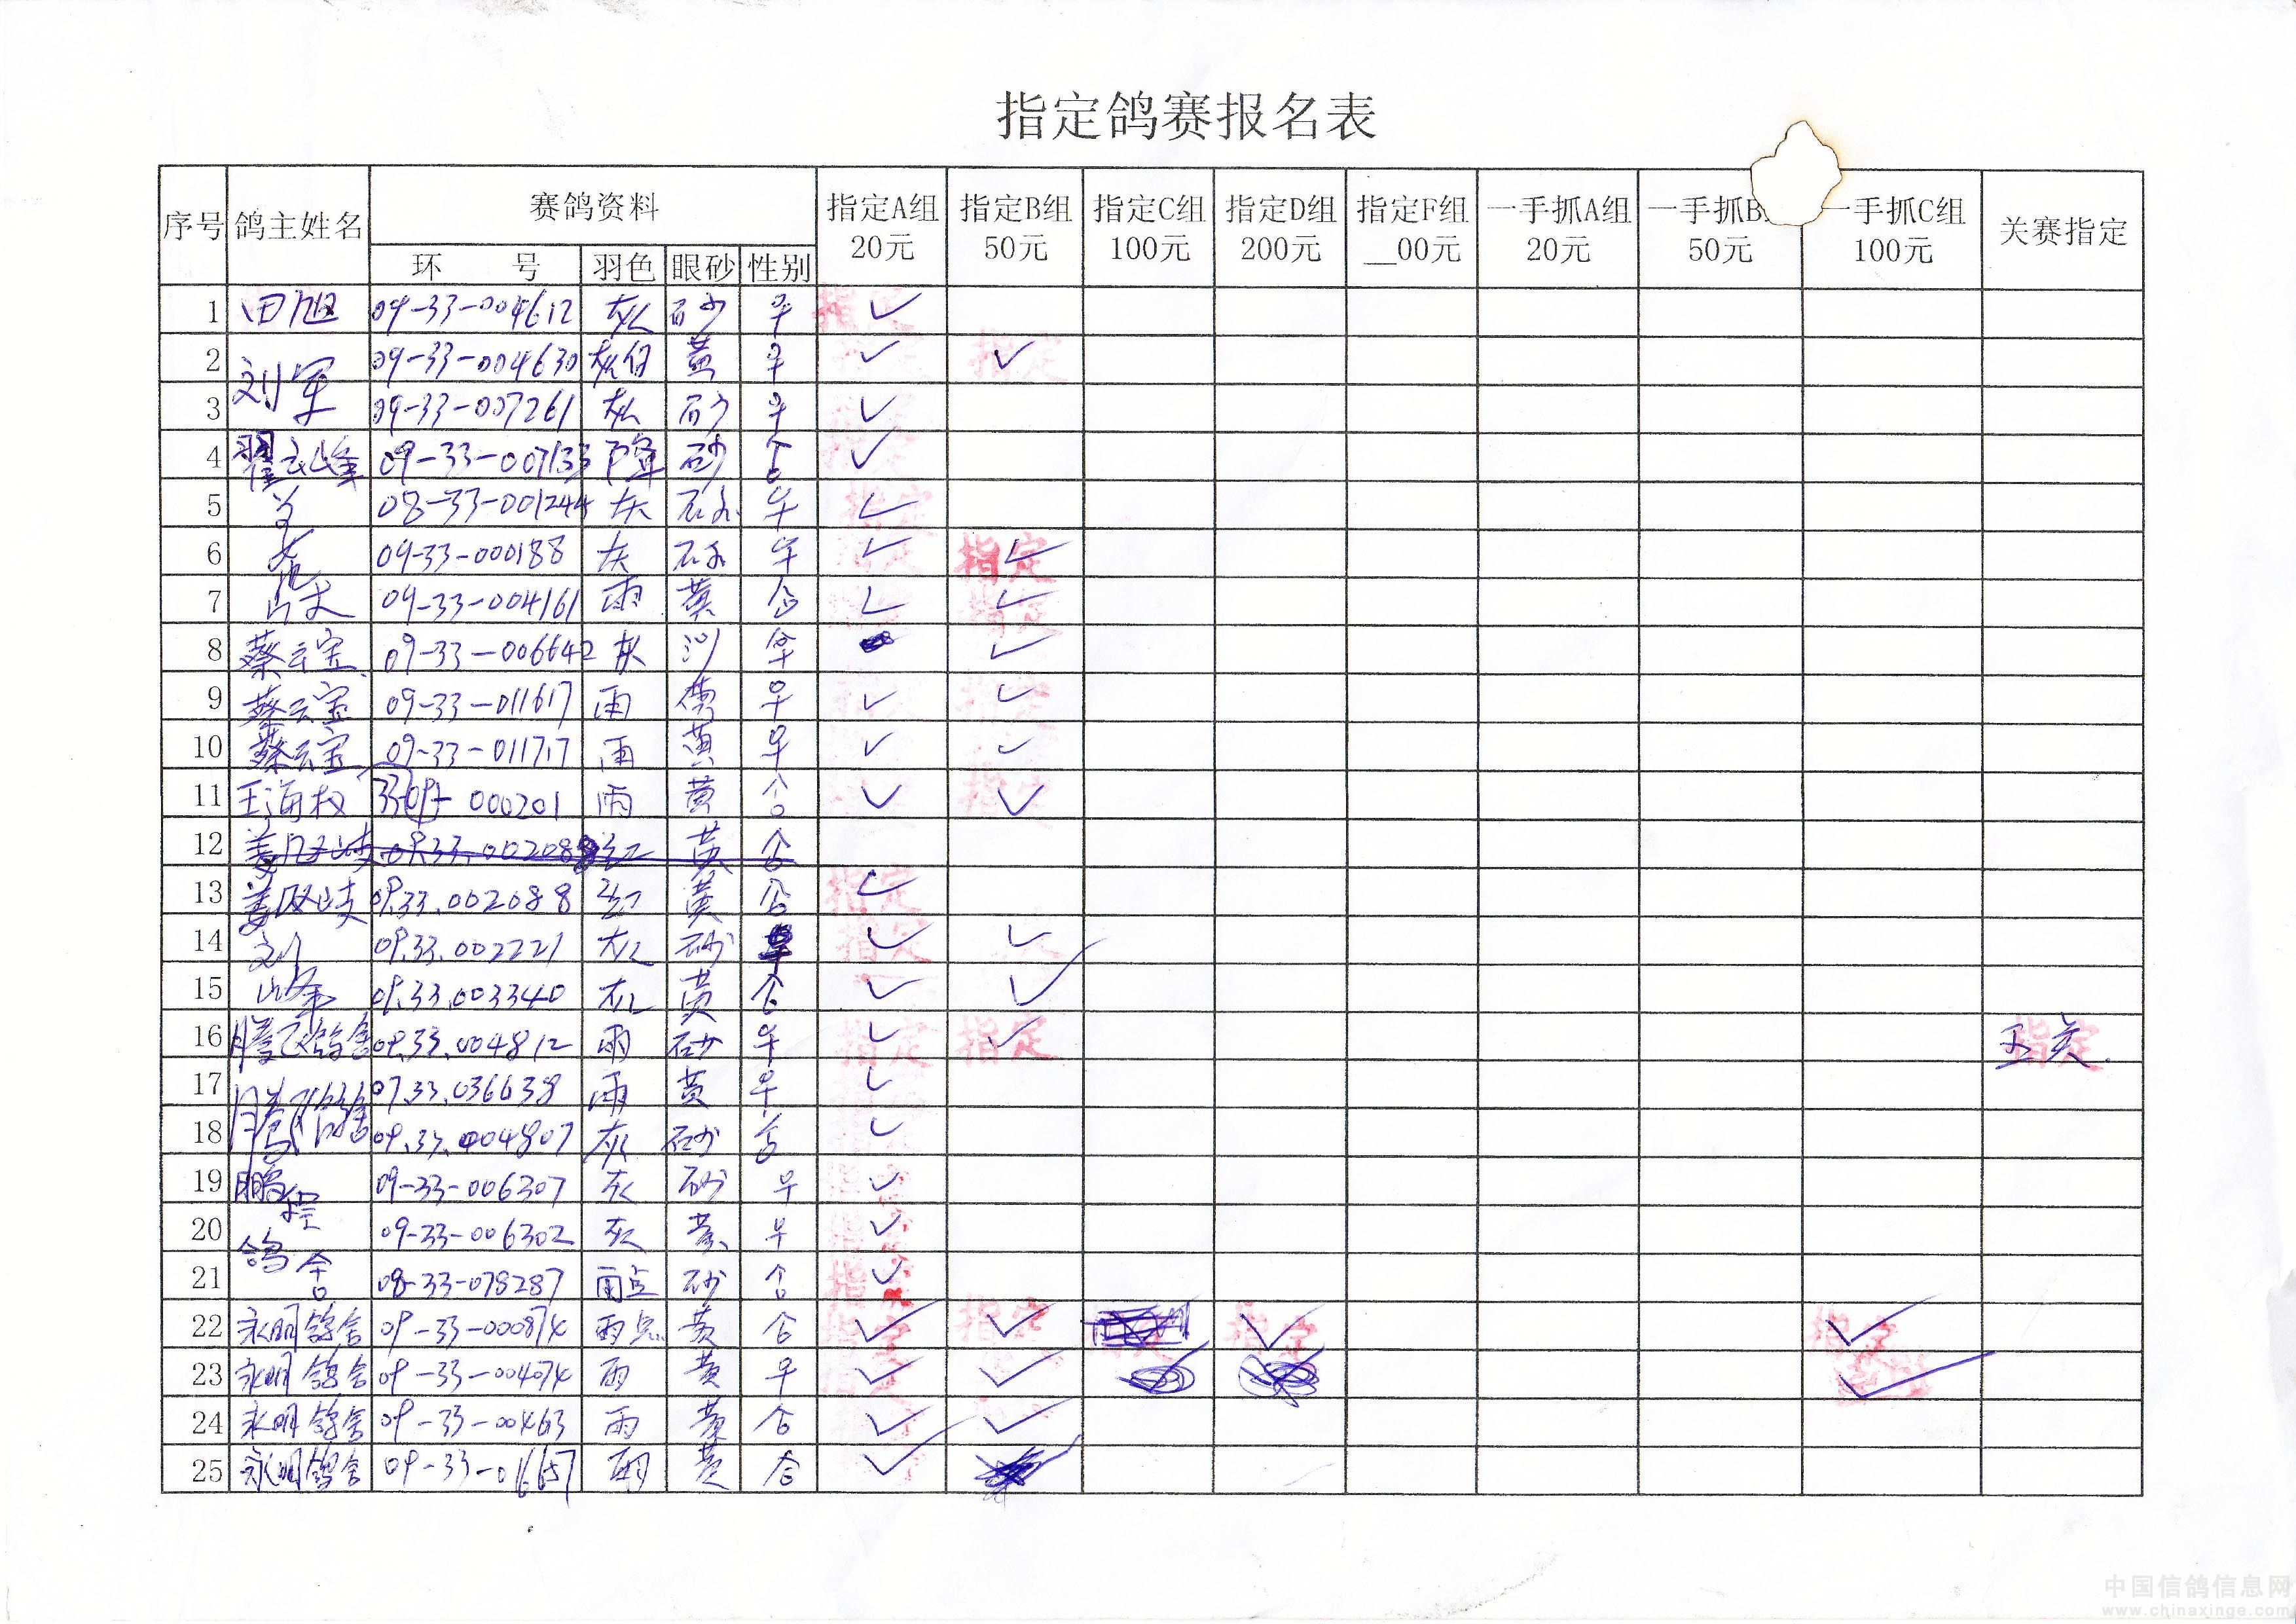 指定鸽赛报名表
序号 鸽主姓名 赛鸽资料 指定A组 20元 指定B组 50元 指定C组 100元 指定D组 200元 指定F组 __00元 一手抓A组 20元 一手抓B 50元 一手抓C组 100元 关赛指定
环 号 羽色 眼砂 性别
1 田旭 09-33-004612 灰 砂 ♀ 指定 ✓
2 刘军 09-33-004630 灰白 黄 ♀ ✓ 指定 ✓
3 09-33-007261 灰 砂 ♀ ✓
4 翟云峰 09-33-007133 砂 合 ✓
5 08-33-001244 灰 砂 ♀ ✓
6 09-33-000188 灰 砂 ♀ ✓ 指定 ✓
7 09-33-004161 雨 黄 合 ✓ ✓
8 蔡云宝 09-33-006642 灰 沙 ♀ ✓
9 蔡云宝 09-33-011617 雨 黄 ♀ ✓ ✓
10 蔡云宝 09-33-011717 雨 黄 ♀ ✓ ✓
11 王海权 33-09- 000201 雨 黄 合 ✓ 指定 ✓
12 姜凤岐 09.33.002088 红 黄 合
13 姜凤岐 09.33.002088 红 黄 合 指定 ✓
14 刘 09.33.002221 灰 砂 指定 ✓ ✓
15 峰 09.33.003340 灰 黄 合 ✓ ✓
16 腾飞鸽舍 09.33.004812 雨 砂 ♀ 指定 ✓ 指定 ✓ 指定 五关
17 腾飞鸽舍 07.33.036638 雨 黄 ♀ ✓
18 09.33.004807 灰 砂 合 ✓
19 鹏程 09-33-006307 灰 砂 ♀ ✓
20 鸽舍 09-33-006302 灰 黄 ♀ ✓
21 08-33-078287 雨点 砂 合 指定 ✓
22 永明鸽舍 09-33-000874 雨点 黄 合 指定 ✓ 指定 ✓ 指定 ✓ 指定 ✓
23 永明鸽舍 09-33-004074 雨 黄 ♀ ✓ ✓ ✓
24 永明鸽舍 09-33-00463 雨 黄 合 ✓ ✓
25 永明鸽舍 09-33-016657 雨 黄 合 ✓
中国信鸽信息网
www.chinaxinge.com